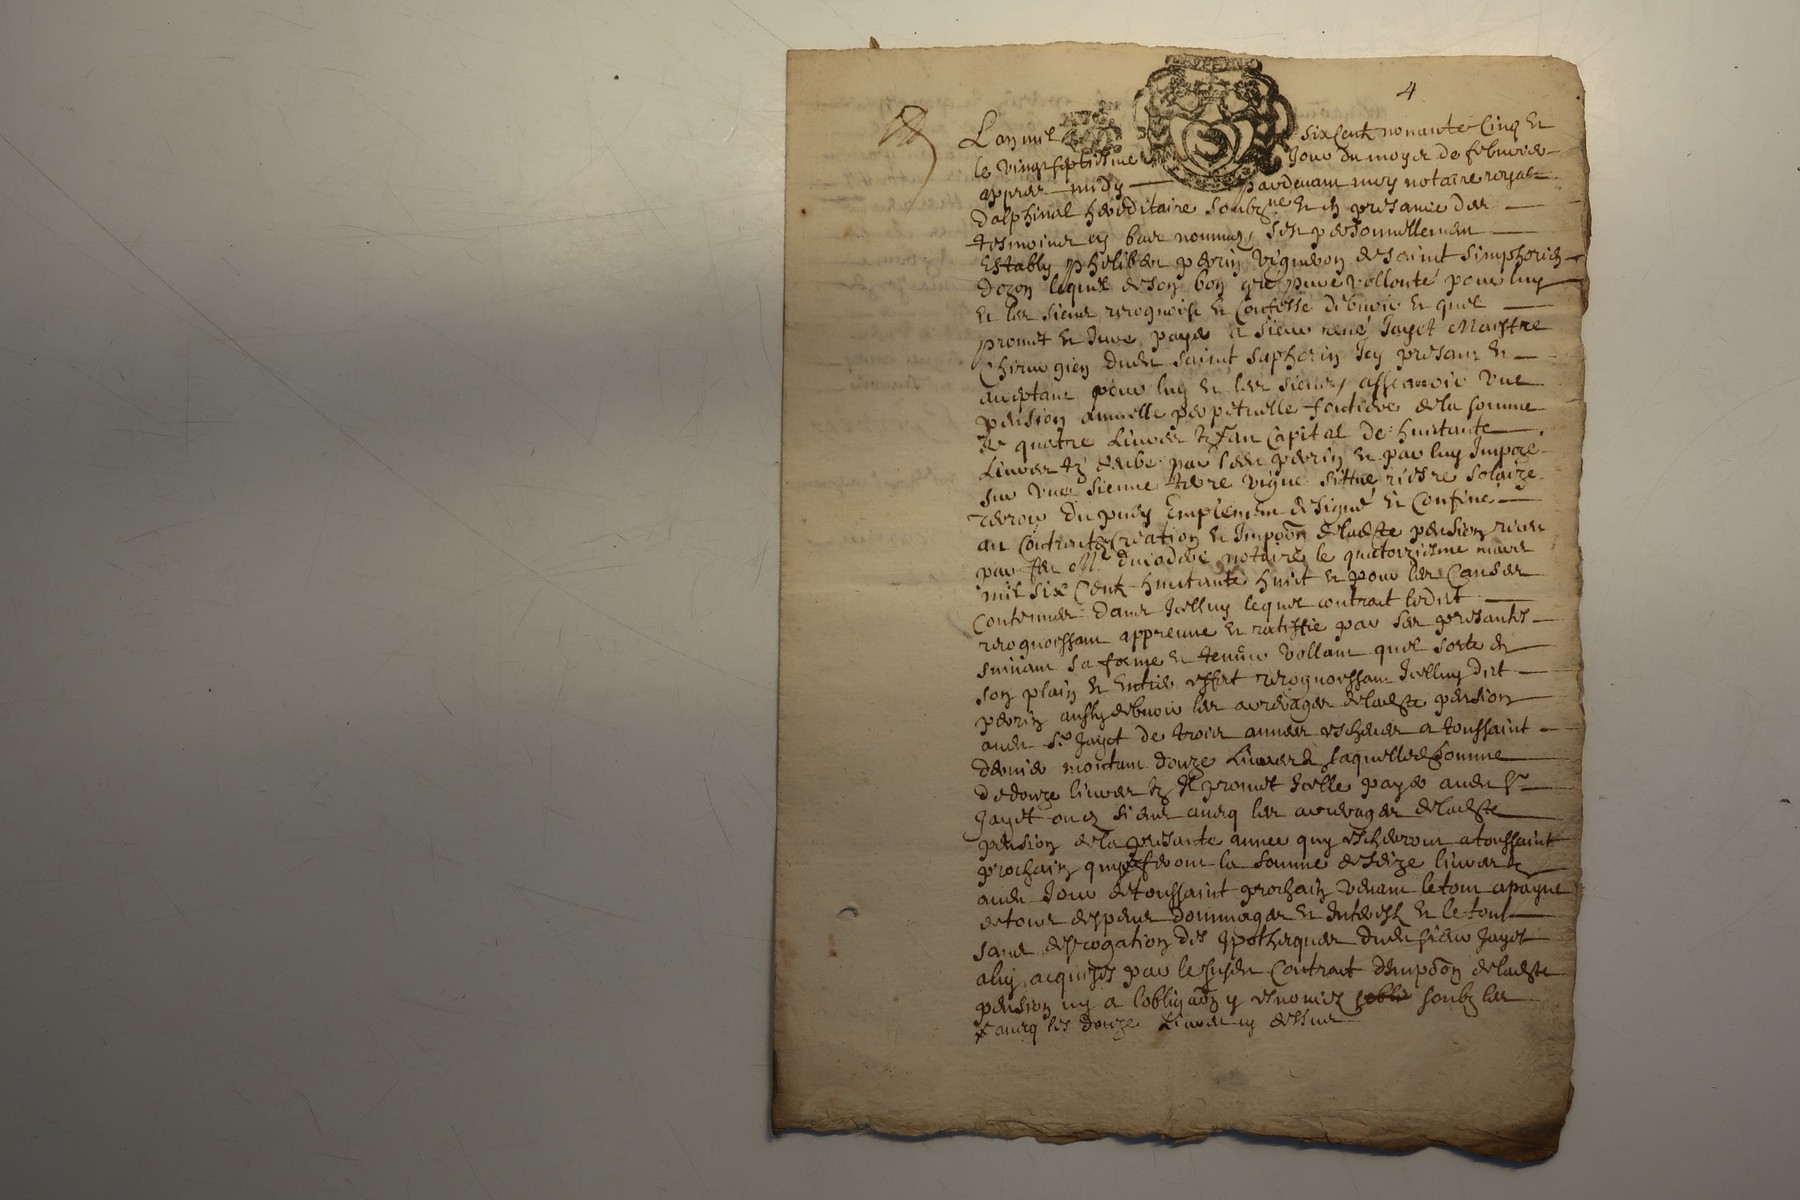 4
L'an mil sixcent nonante cinq et
le vingtseptiesme jour du moys de febvrier
appres midy pardevant moy notaire royal
dalphinal hereditaire soubzne et en presance des
tesmoins en bas nommez s'est personnellement
estably Philibert perrin vigneron de saint simphorien
dozon lequel de son bon gre pure vollonte pour luy
et les siens recognoist et confesse debvoir et quel
promet et jure payer a sieur rené Jayet Maistre
Chirurgien dudt saint saphorin Icy presant et
acceptant pour luy et les siens, assavoir une
pension annuelle perpetuelle fontiere de la somme
de quatre Livres tz au capital de huitante
Livres tz deube par ledt perrin et par luy Impoze
sur une sienne terre vigne sittue riere solaize
terroir du puis Emplement designé et Confine
au Contrait Creation et Impoon de ladte pension receu
par feu Me notaire le quatorziesme mars
mil six Cent huitante huit et pour les Causes
Contenues dans Icelluy lequel contrait ledit
recognoissant appreuve et rattiffie par ses presantes
suivant sa forme et teneur vollant quel sorte en
son plain et entier effet recognoissant Icelluy dit
perrin aussy debvoir les arrerages de ladte pension
audt Sr Jayet de trois annees escheues a toussaint
dernier montant douze Livres laquelle somme
de douze livres tz Il promet Icelle payer audt Sr
Jayet ou es siens avecq les arrerages de ladte
pension de la presante annee quy escherront a toussaint
prochain quy feront la somme de seize livres tz
audt Jour de toussaint prochain venant le tout a payne
de tous despens dommages et Interestz et le tout
sans desrogation des Ipotheques dudt sieur Jayet
a luy acquizes par le susdt Contrait d'Impoon de ladte
pension ny a lobligaon y soubz les
x avecq les douze Livres cy dessus